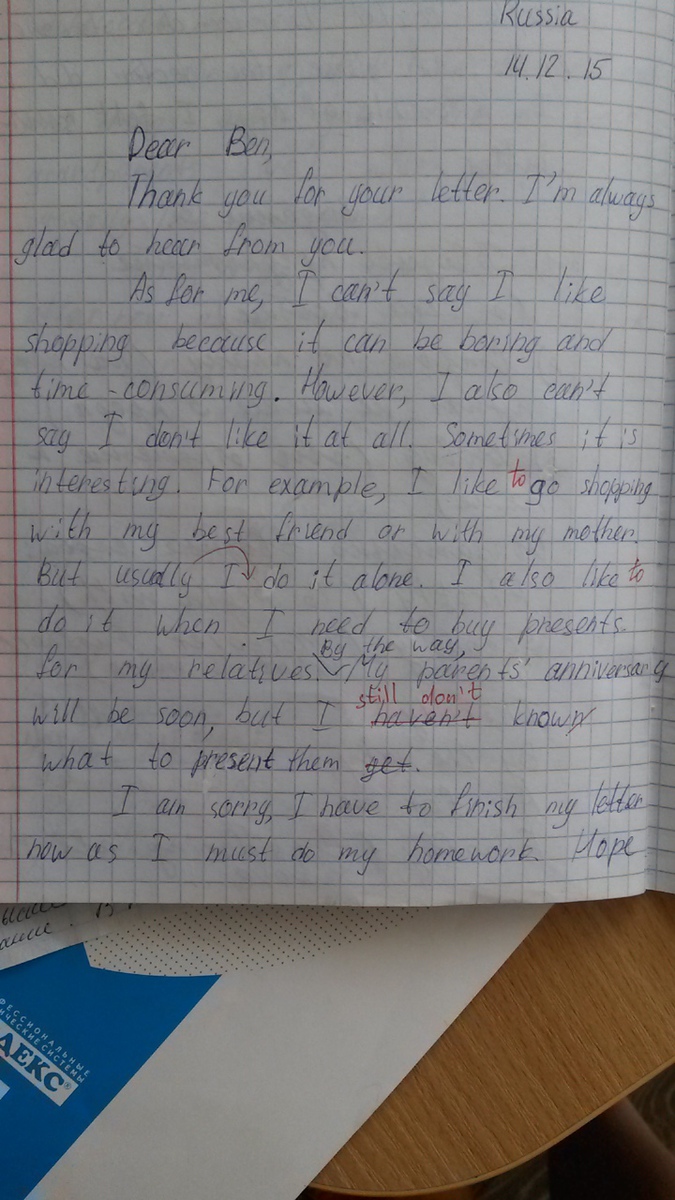 Russia
14.12.15
Dear Ben,
Thank you for your letter. I'm always
glad to hear from you.
As for me, I can't say I like
shopping because it can be boring and
time-consuming. However, I also can't
say I don't like it at all. Sometimes it is
interesting. For example, I like to go shopping
with my best friend or with my mother.
But usually I do it alone. I also like to
do it when I need to buy presents
By the way,
for my relatives. My parents' anniversary
still don't
will be soon, but I haven't known
what to present them get.
I am sorry, I have to finish my letter
now as I must do my homework. Hope
ФЕССИОНАЛЬНЫЕ
ИЧЕСКИЕ СИСТЕМЫ
АЕКС®